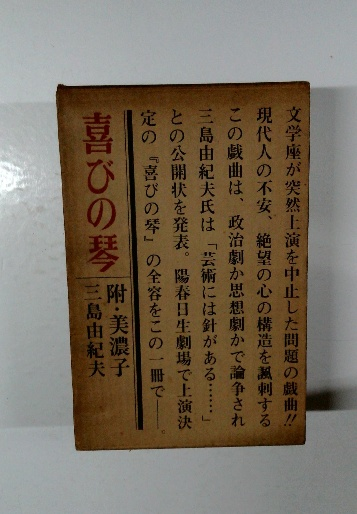 文学座が突然上演を中止した問題の戯曲!!
現代人の不安、絶望の心の構造を諷刺する
この戯曲は、政治劇か思想劇かで論争され
三島由紀夫氏は「芸術には針がある……」
との公開状を発表。陽春日生劇場で上演決
定の『喜びの琴』の全容をこの一冊で——
喜びの琴
附・美濃子
三島由紀夫